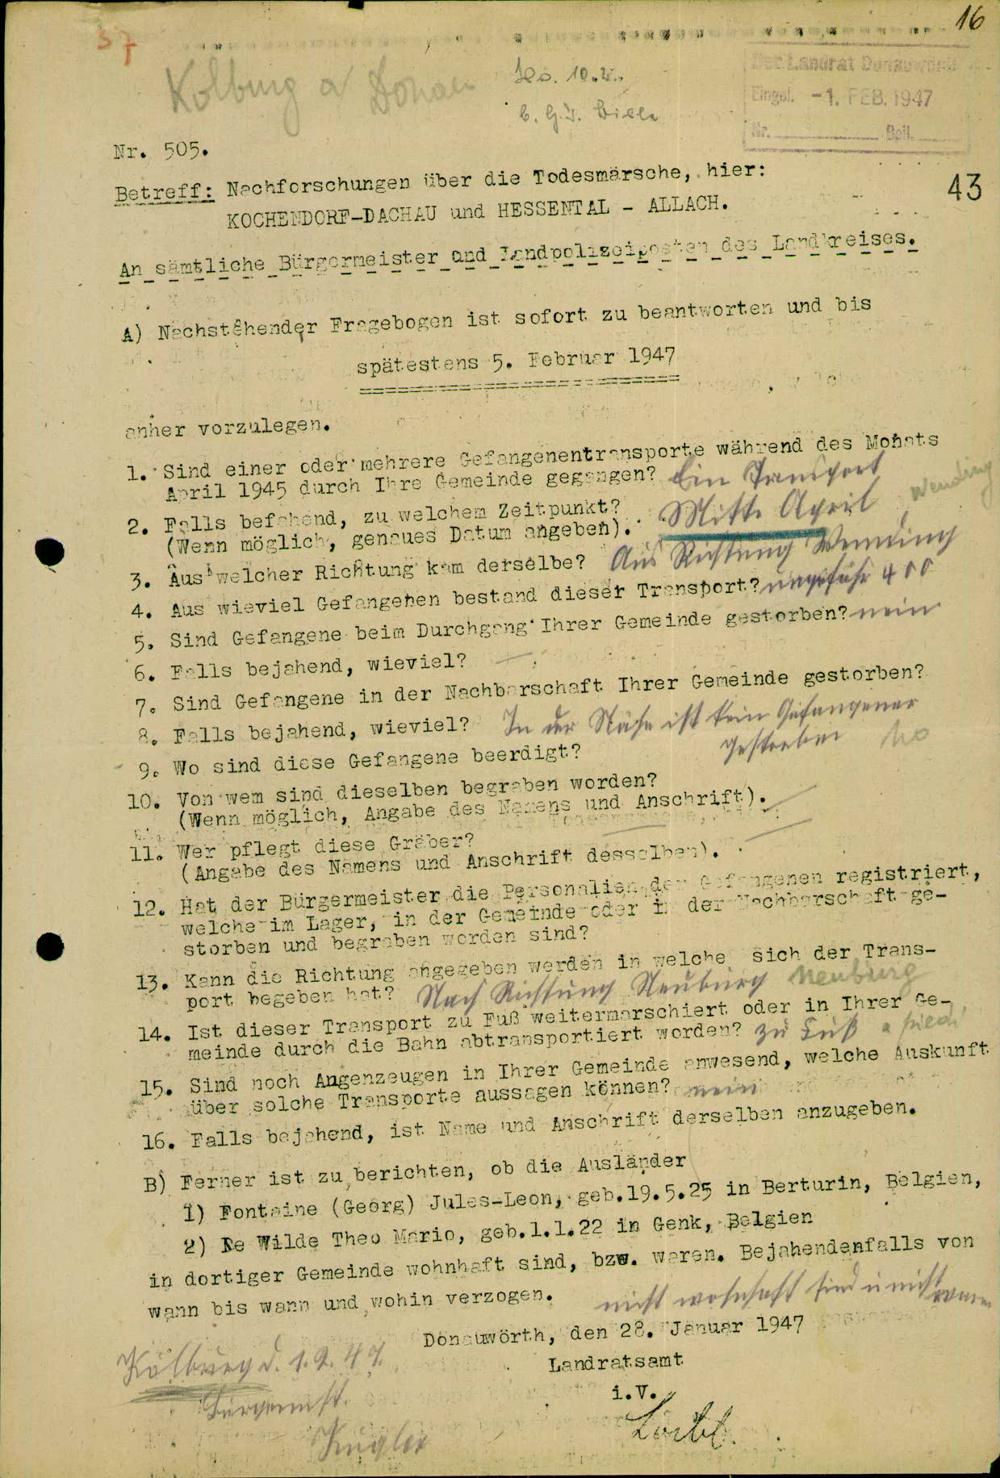 16
37
Kölburg a Donau
Der Landrat Donauwörth
Eingel. -1. FEB. 1947
Nr. Beil.
Nr. 505.
Betreff: Nachforschungen über die Todesmärsche, hier:
KOCHENDORF-DACHAU und HESSENTAL - ALLACH.
43
An sämtliche Bürgermeister und Landpolizeiposten des Landkreises.
A) Nachstehender Fragebogen ist sofort zu beantworten und bis
spätestens 5. Februar 1947
anher vorzulegen.
1. Sind einer oder mehrere Gefangenentransporte während des Monats
April 1945 durch Ihre Gemeinde gegangen? Ein Transport
2. Falls befahend, zu welchem Zeitpunkt?
(Wenn möglich, genaues Datum angeben). Mitte April Wemding
3. Aus welcher Richtung kam derselbe? Aus Richtung Wemding
4. Aus wieviel Gefangenen bestand dieser Transport? ungefähr 400
5. Sind Gefangene beim Durchgang Ihrer Gemeinde gestorben? nein
6. Falls bejahend, wieviel? —
7. Sind Gefangene in der Nachbarschaft Ihrer Gemeinde gestorben?
8. Falls bejahend, wieviel? In der Nähe ist kein Gefangener
gestorben no
9. Wo sind diese Gefangene beerdigt?
10. Von wem sind dieselben begraben worden?
(Wenn möglich, Angabe des Namens und Anschrift).
11. Wer pflegt diese Gräber?
(Angabe des Namens und Anschrift desselben).
12. Hat der Bürgermeister die Personalien der Gefangenen registriert,
welche im Lager, in der Gemeinde oder in der Nachbarschaft ge-
storben und begraben worden sind?
13. Kann die Richtung angegeben werden in welche sich der Trans-
port begeben hat? Nach Richtung Neuburg Neuburg
14. Ist dieser Transport zu Fuß weitermarschiert oder in Ihrer Ge-
meinde durch die Bahn abtransportiert worden? zu Fuß a pied
15. Sind noch Augenzeugen in Ihrer Gemeinde anwesend, welche Auskunft
über solche Transporte aussagen können? nein
16. Falls bejahend, ist Name und Anschrift derselben anzugeben.
B) Ferner ist zu berichten, ob die Ausländer
1) Fontaine (Georg) Jules-Leon, geb.19.5.25 in Berturin, Belgien,
2) De Wilde Theo Mario, geb.1.1.22 in Genk, Belgien
in dortiger Gemeinde wohnhaft sind, bzw. waren. Bejahendenfalls von
wann bis wann und wohin verzogen. nicht wohnhaft sind u nicht waren
Donauwörth, den 28. Januar 1947
Landratsamt
i.V.
Kölburg d. 1.2.47.
Bürgermst.
Kugler